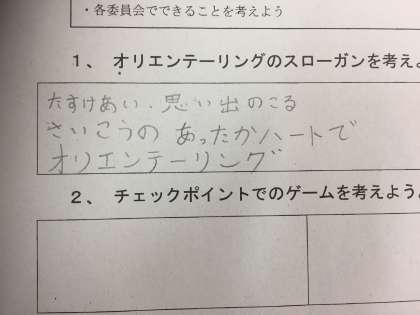 ・各委員会でできることを考えよう
１、 オリエンテーリングのスローガンを考えよ
たすけあい、思い出のこる
さいこうの あったかハートで
オリエンテーリング
２、 チェックポイントでのゲームを考えよう。